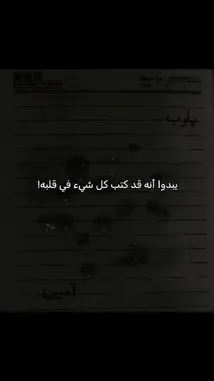 يارب
يبدوا أنه قد كتب كل شيء في قلبه!
آمين